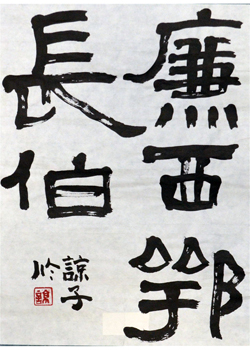 廉西鄂
長伯
諒子
临